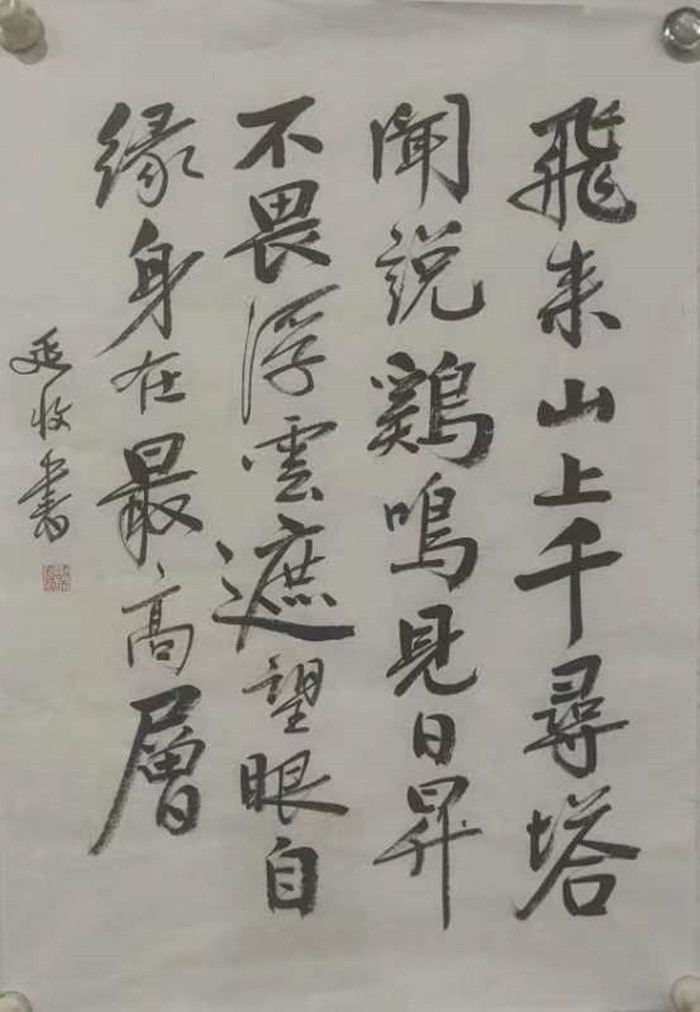 飛来山上千尋塔
聞説鷄鳴見日昇
不畏浮雲遮望眼自
缘身在最高層
延收書